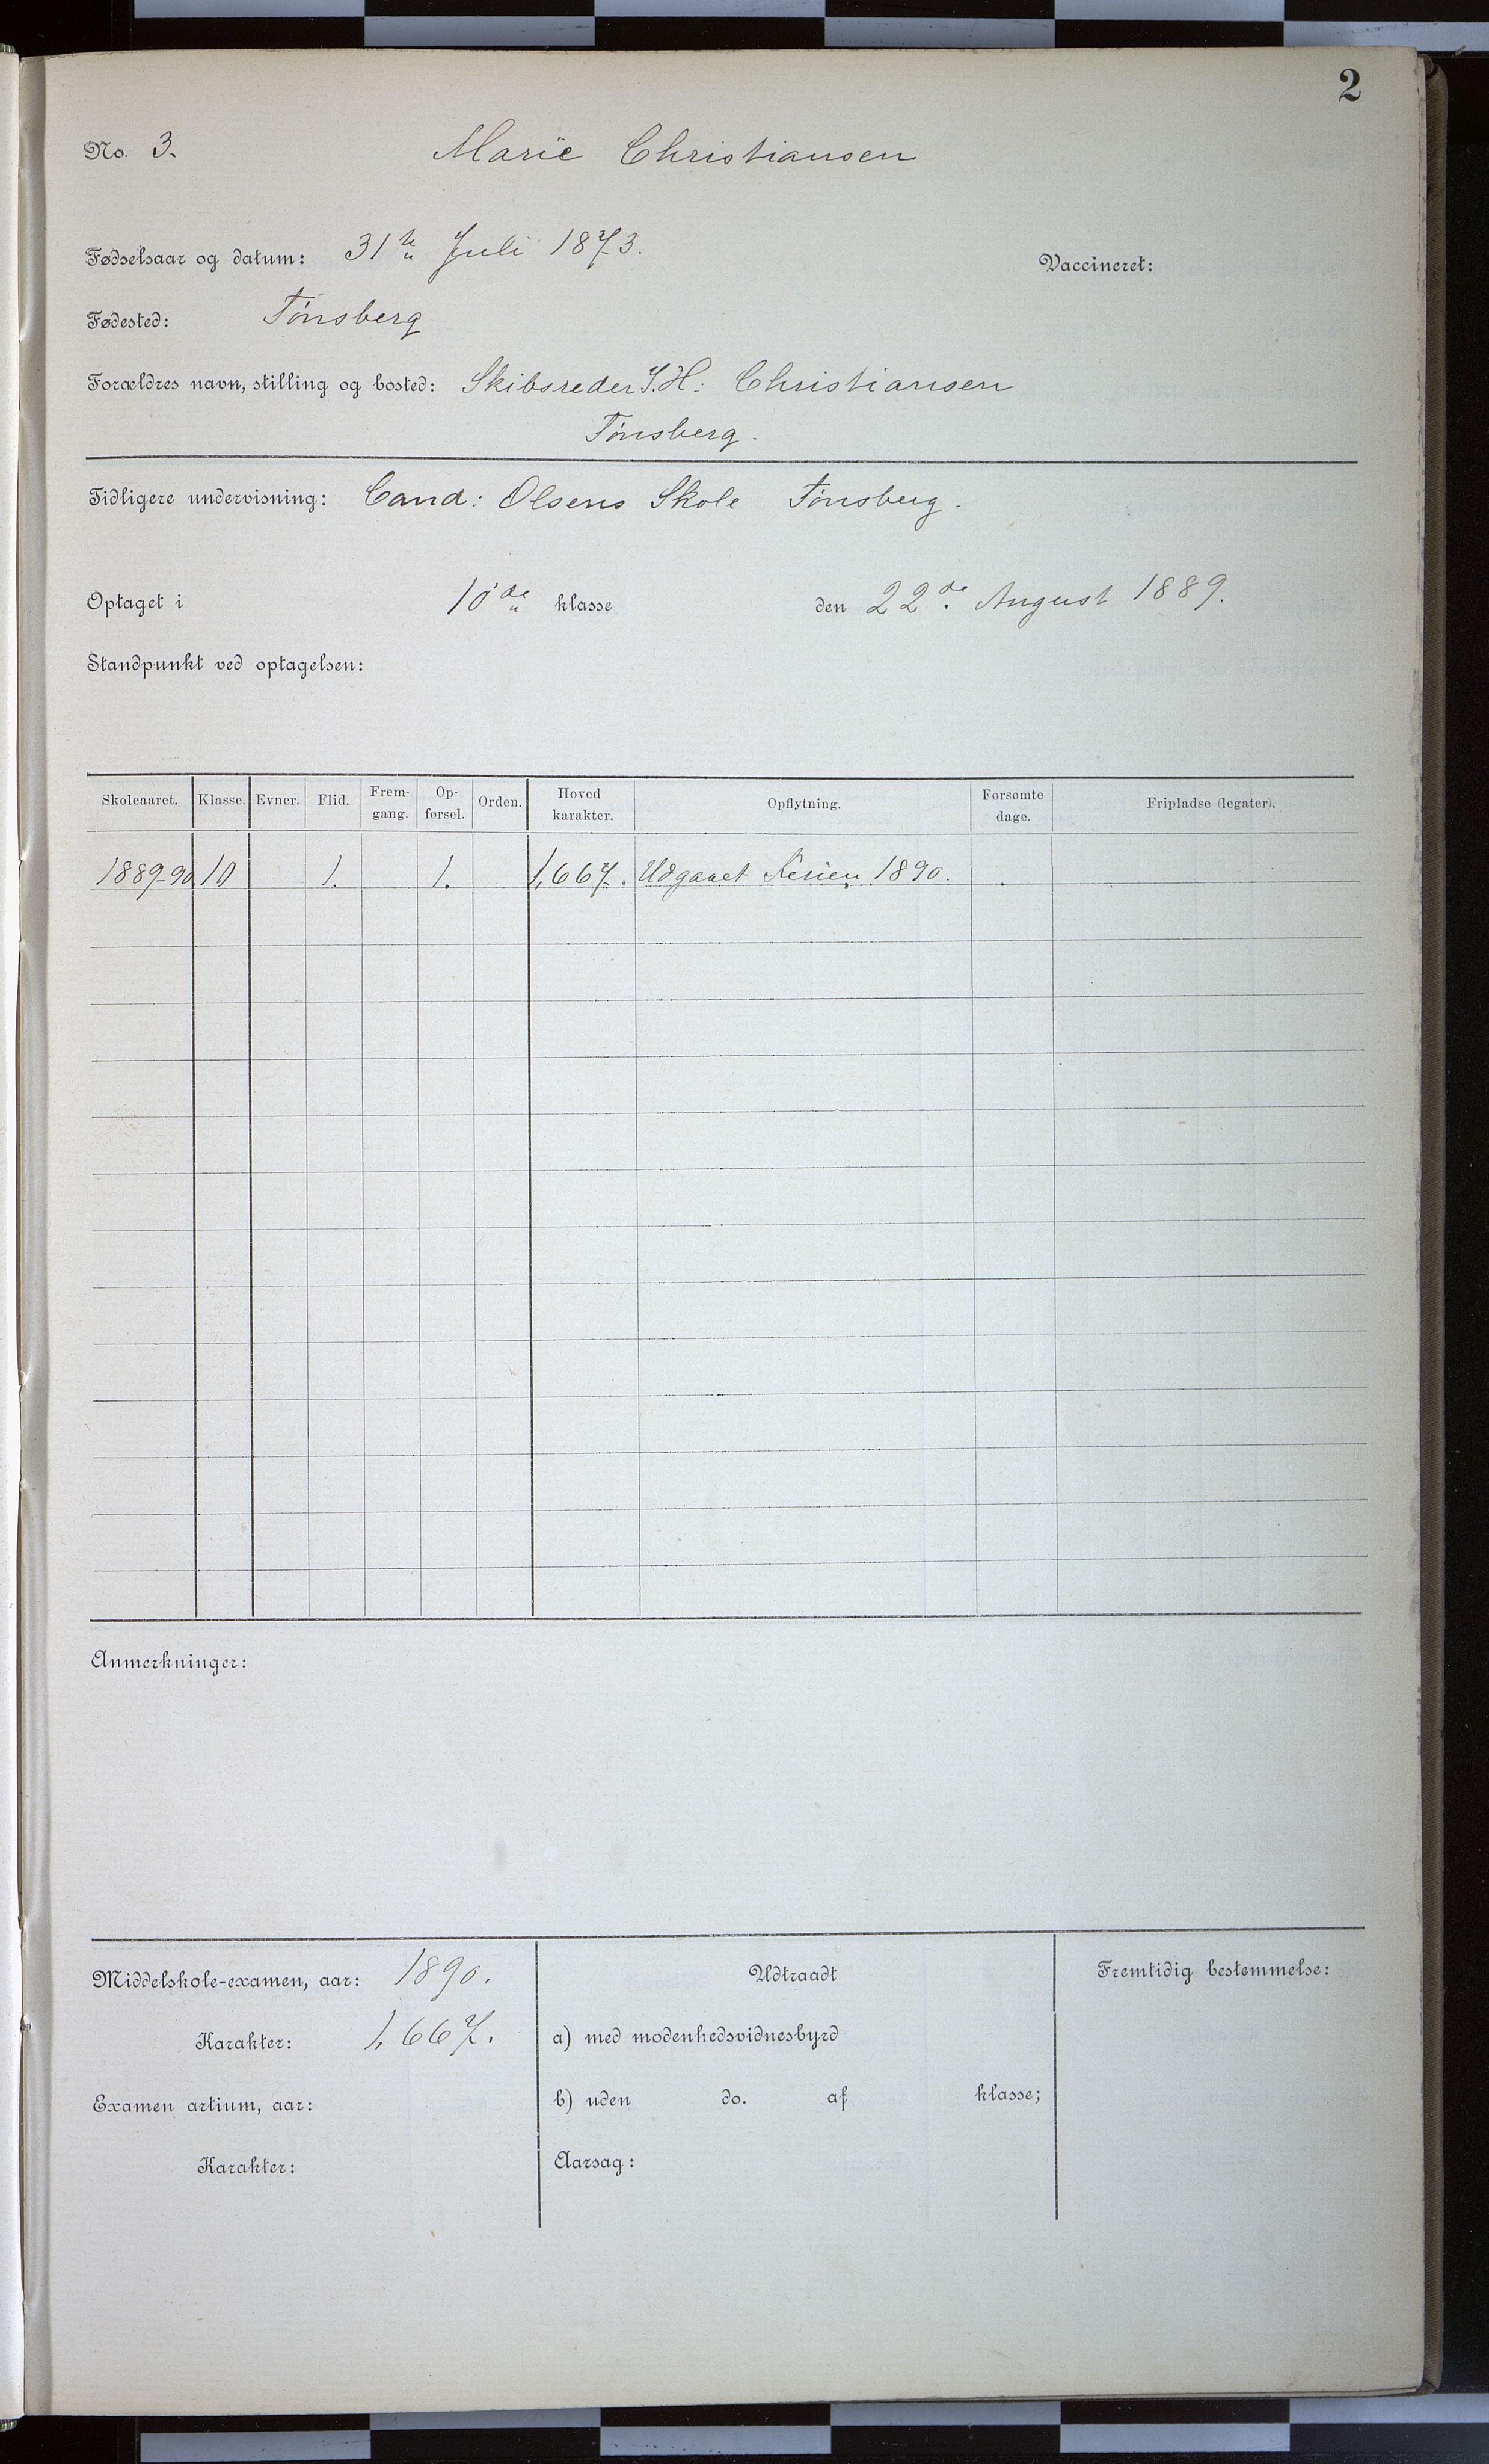 2
No. 3. Marie Christiansen
Fødselsaar og datum: 31te Juli 1873. Vaccineret:
Fødested: Tönsberg
Forældres navn, stilling og bosted: Skibsreder J. H. Christiansen
Tönsberg.
Tidligere undervisning: Cand: Olsens Skole Tönsberg.
Optaget i 10de klasse den 22de August 1889.
Standpunkt ved optagelsen:
Skoleaaret. Klasse. Evner. Flid. Frem- gang. Op- førsel. Orden. Hoved karakter. Opflytning. Forsømte dage. Fripladse (legater).
1889-90 10 1. 1. 1,667. Udgaaet Ferien 1890.
Anmerkninger:
Middelskole-examen, aar: 1890. Udtraadt Fremtidig bestemmelse:
Karakter: 1,667. a) med modenhedsvidnesbyrd
Examen artium, aar: b) uden do. af klasse;
Karakter: Aarsag: